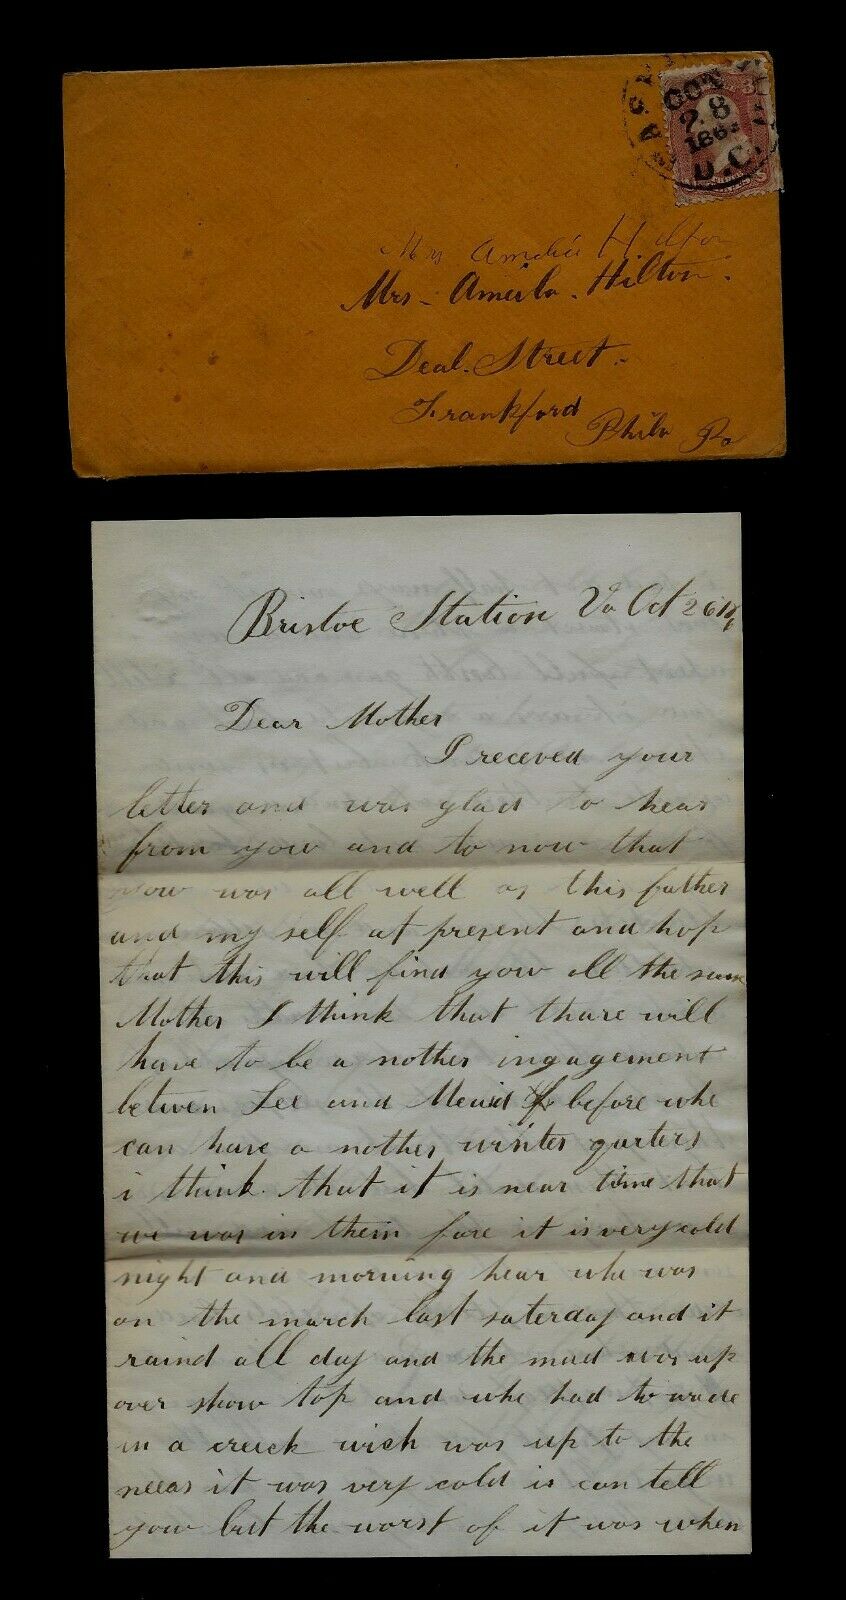 OCT
28
186
D.C.
3
Mrs Amelia Hilton
Mrs - Ameila - Hilton.
Deal. Street.
Frankford
Phila Pa
Bristoe Station Va Oct 26th
Dear Mother
I receved your
letter and was glad to hear
from yow and to now that
yow was all well as this father
and my self at present and hop
that this will find yow all the same
Mother I think that thare will
have to be a nother ingagement
betwen Lee and Meaid before whe
can have a nother winter qurters
i think that it is near time that
we was in them fore it is very cold
night and morning hear whe was
on the march last saterday and it
raind all day and the mud was up
over show top and whe had to wade
in a creick wich was up to the
neeas it was very cold is can tell
yow but the worst of it was when